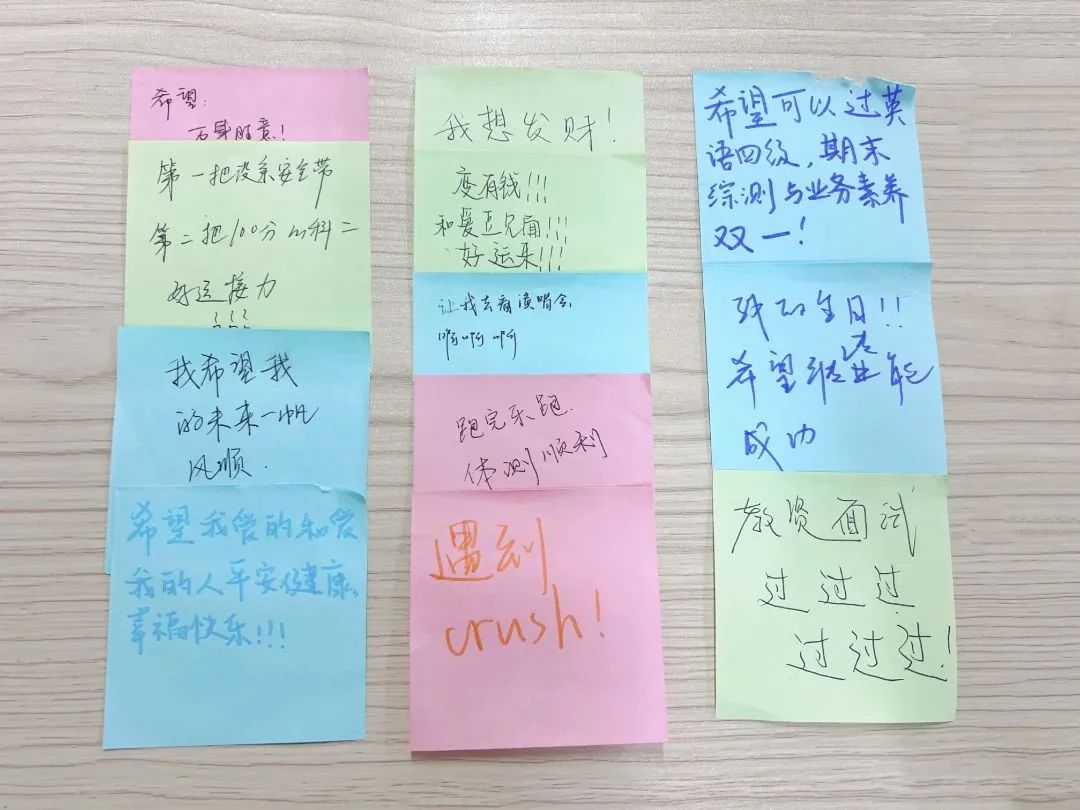 希望:
万事胜意!
第一把没系安全带
第二把100分的科二
好运接力
!!!
我希望我
的未来一帆
风顺.
希望我爱的和爱
我的人平安健康,
幸福快乐!!!
我想发财!
变有钱!!!
和爱豆见面!!!
好运来!!!
让我去看演唱会
啊啊啊
跑完乐跑.
体测顺利
遇到
crush!
希望可以过英
语四级,期末
综测与业务素养
双一!
我的生日!!
希望结业能
成功
教资面试
过过过
过过过!